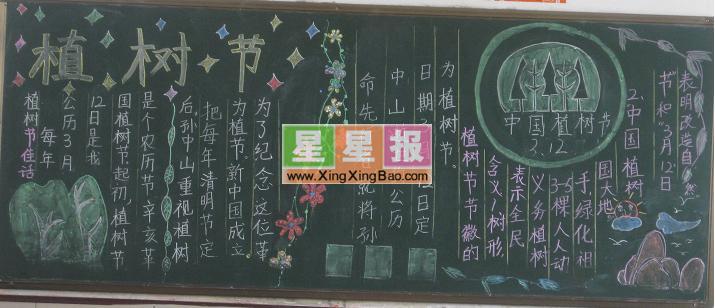 植树节
植树节佳话
每年
公历3月
12日是我
国植树节.起初,植树节
是个农历节.辛亥革
后孙中山重视植树
把每年清明节定
为植节.新中国成立
为了纪念这位革
命先 就将孙
中山 公历
日期 12日定
为植树节。
中国植树节
3.12
植树节节徽的
含义1树形
表示全民
义务植树
3-5棵人人动
手,绿化祖
国大地
2.中国植树
节和"3月12日
表明改造自然
星星报
www.XingXingBao.com